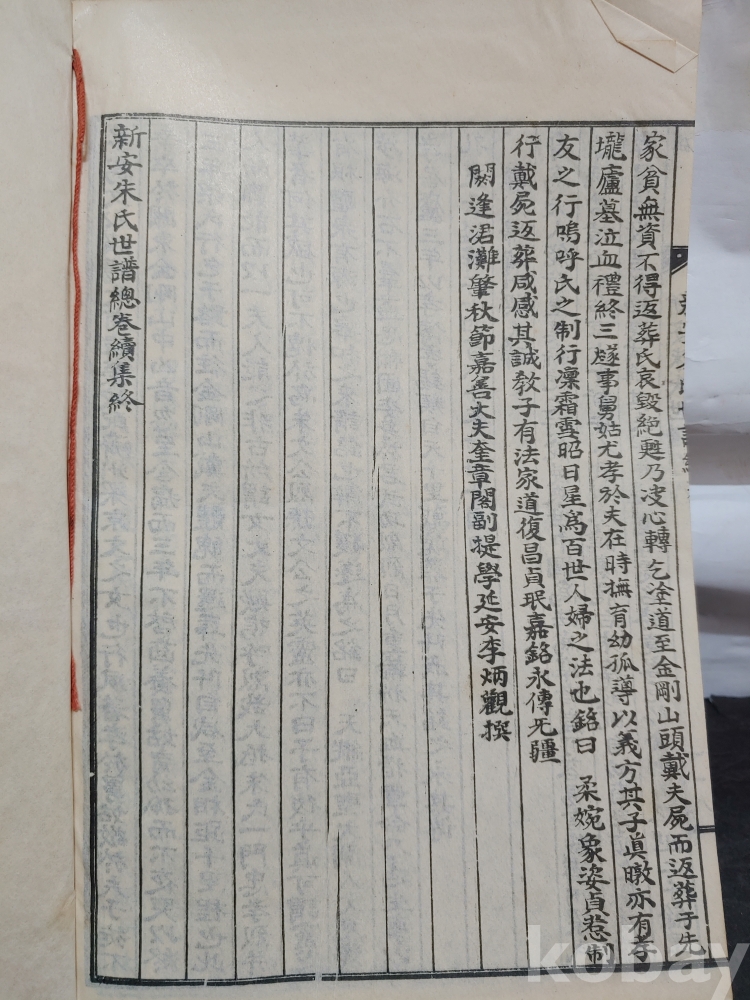 家貧無資不得返葬氏哀毀絶甦乃決心轉乞塗道至金剛山頭戴夫屍而返葬于先
壠廬墓泣血禮終三燧事舅姑尤孝於夫在時撫育幼孤導以義方其子眞暾亦有孝
友之行嗚呼氏之制行凜霜雪昭日星爲百世人婦之法也銘曰　柔婉象姿貞惷制
行戴屍返葬咸感其誠敎子有法家道復昌貞珉嘉銘永傳无疆
閼逢涒灘肇秋節嘉善大夫奎章閣副提學延安李炳觀撰
新安朱氏世譜總卷續集終
kobay